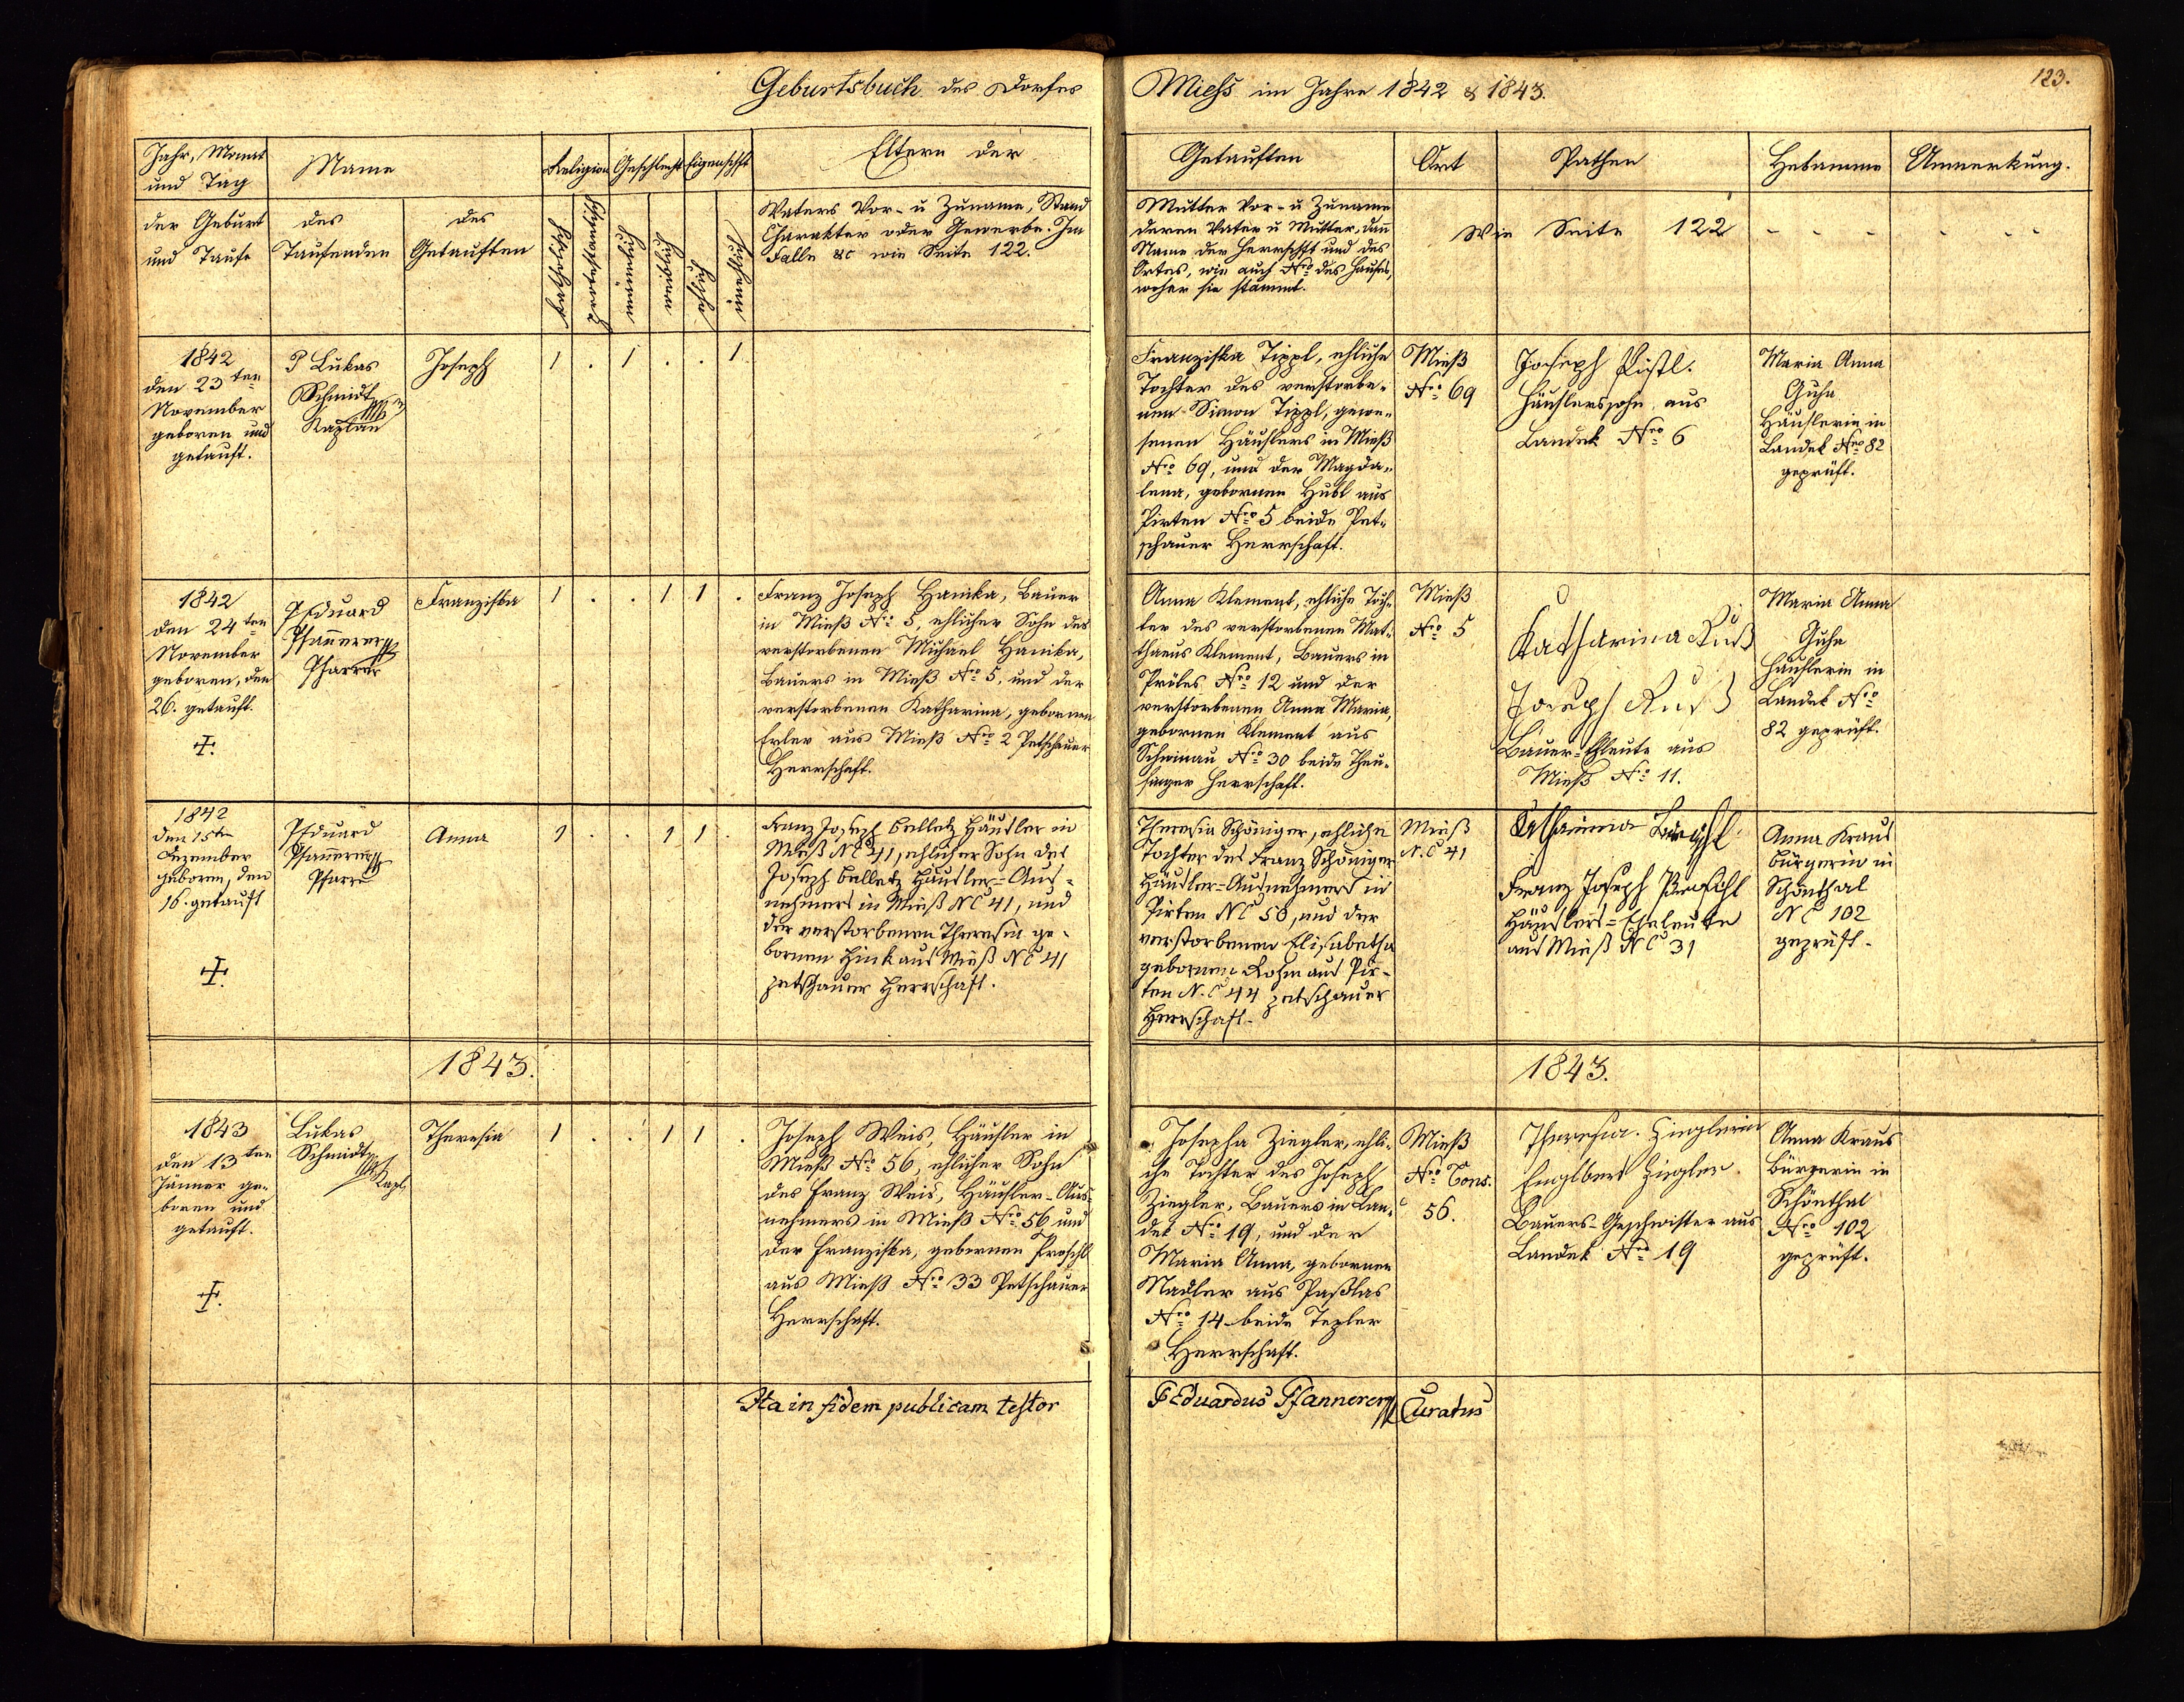 Geburtsbuch des Dorfes
Miess im Jahre 1842 & 1843.
123.
Jahr, Monat
und Tag
Name
Religion
Geschlecht
Eigenschft
Eltern der
Getauften
Ort
Pathen
Hebamme
Anmerkung.
der Geburt
und Taufe
des
Taufenden
des
Getauften
katholisch
protestantisch
männlich
weiblich
ehlich
unehlich
Vaters Vor- u Zuname, Stand
Charakter oder Gewerbe. Im
Falle &c wie Seite 122.
Mutter Vor- u Zuname
deren Vater u Mutter, dan̄
Name der Herrschft und des
Ortes, wie auch Nro des Hauses,
woher sie stammt.
Wie Seite 122 - - - - - -
1842
den 23ten
November
geboren und
getauft.
P Lukas
Schmidt
Kaplan
Joseph
1 . 1 . . 1
Franziska Tippl, ehliche
Tochter des verstorbe-
nen Simon Tippl, gewe-
senen Häuslers in Mieß
Nro 69, und der Magda-
lena, gebornen Hubl aus
Pirten Nro 5 beide Pet-
schauer Herrschaft.
Mieß
Nro 69
Joseph
Häuslerssohn aus
Landek Nro 6
Maria Anna
Guhe
Häuslerin in
Landek Nro 82
geprüft.
1842
den 24ten
November
geboren, den
26. getauft.
P Eduard
Pfan̄erer
Pfarrer
Franziska
1 . . 1 1 .
Franz Joseph Hanika, Bauer
in Mieß Nro 5, ehlicher Sohn des
verstorbenen Michael Hanika,
Bauers in Mieß Nro 5, und der
verstorbenen Katharina, gebornen
Erler aus Mieß Nro 2 Petschauer
Herrschaft.
Anna Klement, ehliche Toch-
ter des verstorbenen Mat-
thaeus Klement, Bauers in
Pröles Nro 12 und der
verstorbenen Anna Maria,
gebornen Klement aus
Schönau Nro 30 beide Theu-
singer Herrschaft.
Mieß
Nro 5
Katharina Ruß
Joseph Ruß
Bauer-Ehleute aus
Mieß Nro 11.
Maria Anna
Guhe
Häuslerin in
Landek Nro
82 geprüft.
1842
den 15ten
Dezember
geboren, den
16. getauft
P Eduard
Pfan̄erer
Pfarrer
Anna
1 . . 1 1 .
Franz Joseph Belletz Häusler in
Mieß NC 41, ehlicher Sohn des
Joseph Belletz Häusler-Aus-
nehmers in Mieß NC 41, und
der verstorbenen Theresia ge-
bornen Hink aus Mieß NC 41
petschauer Herrschaft.
Theresia Schöniger, ehliche
Tochter des Franz Schöniger
Häusler-Ausnehmers in
Pirten NC 50, und der
verstorbenen Elisabetha
gebornen Rohm aus Pir-
ten N.C 44 petschauer
Herrschaft.
Mieß
N.C 41
Katharina
Franz Joseph
Häuslers-Eheleute
aus Mieß NC 31
Anna Kraus
Bürgerin in
Schönthal
NC 102
geprüft.
1843.
1843.
1843
den 13ten
Jänner ge-
boren und
getauft.
Lukas
Schmidt
Kapl.
Theresia
1 . . 1 1 .
Joseph Weis, Häusler in
Mieß Nro 56, ehlicher Sohn
des Franz Weis, Häusler-Aus-
nehmers in Mieß Nro 56 und
der Franziska, gebornen Proschl
aus Mieß Nro 33 Petschauer
Herrschaft.
Josepha Ziegler, ehli-
che Tochter des Joseph
Ziegler, Bauers in Lan-
dek Nro 19, und der
Maria Anna, gebornen
Nadler aus Paßlas
Nro 14 beide Tepler
Herrschaft.
Mieß
Nro Cons.
56.
Theresia. Zieglerin
Englbert Ziegler.
Bauers-Geschwister aus
Landek Nro 19
Anna Kraus
Bürgerin in
Schönthal
Nro 102
geprüft.
Ita in fidem publicam testor
P Eduardus Pfannerer
Curatus